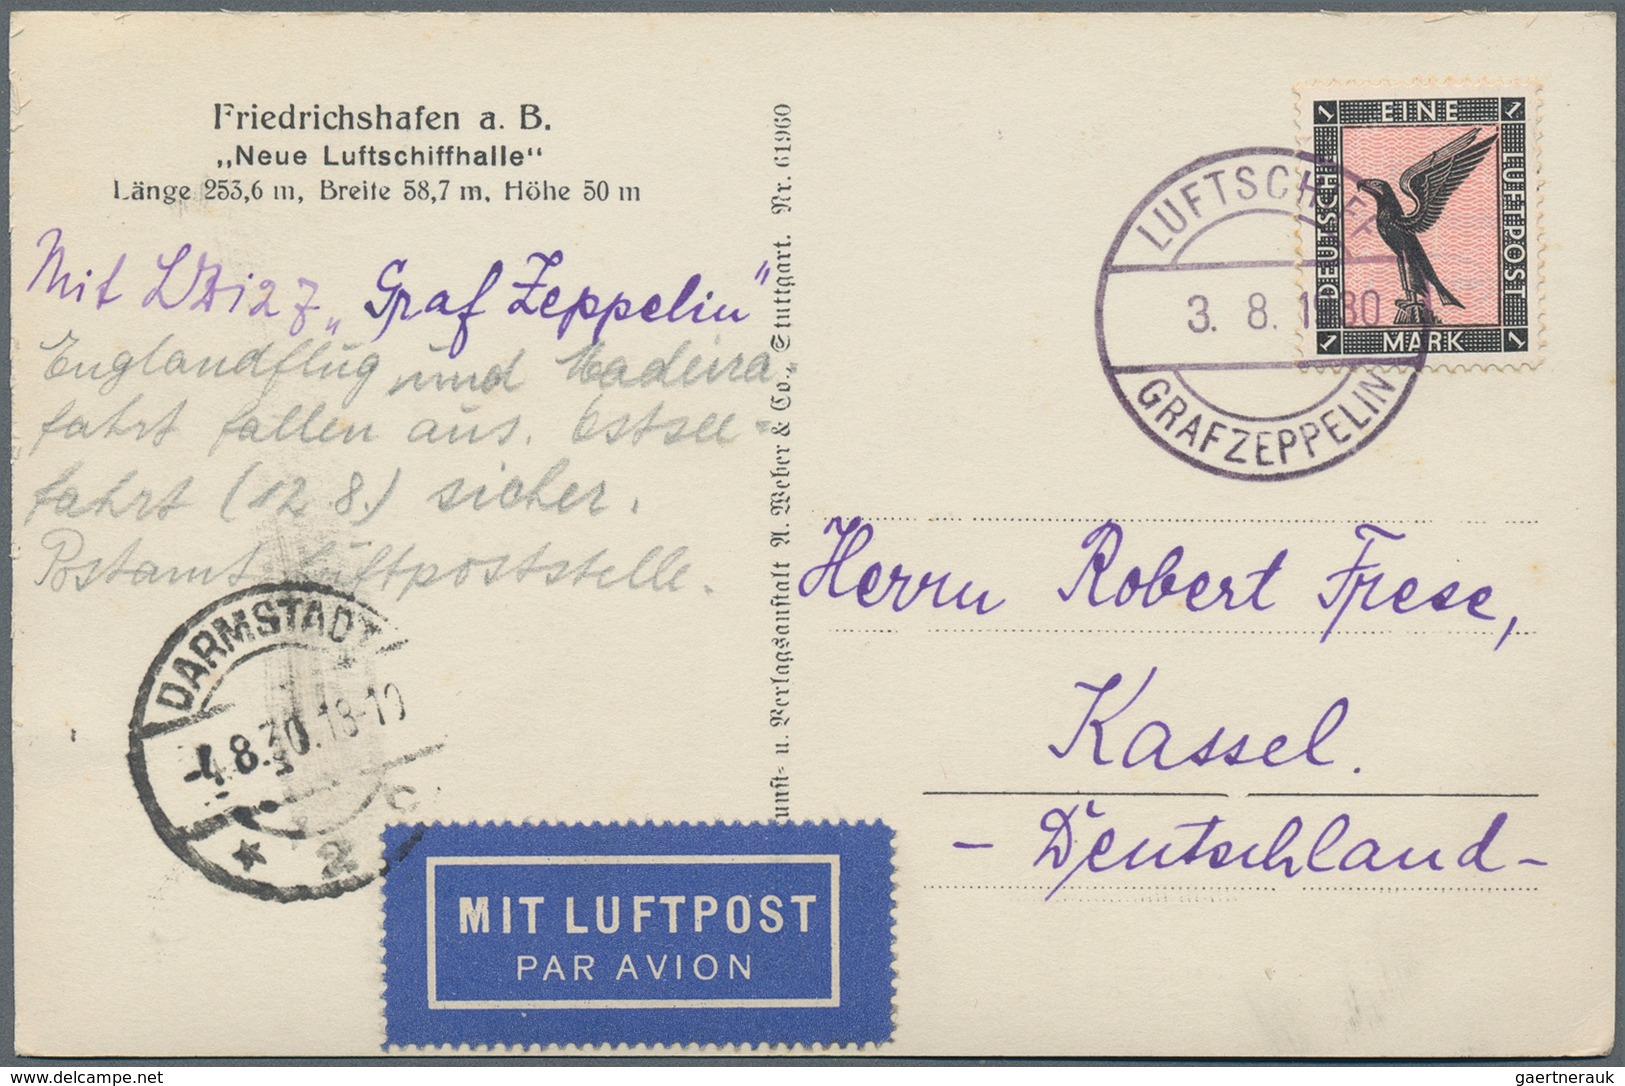 Friedrichshafen a. B.
„Neue Luftschiffhalle"
Länge 253,6 m, Breite 58,7 m, Höhe 50 m
Mit LZ 127 „Graf Zeppelin"
Englandflug und Madeira
fahrt fallen aus. Ostsee=
fahrt (12 8.) sicher.
Postamt Luftpoststelle.
DARMSTADT
-4.8.30.18-19
* 2
MIT LUFTPOST
PAR AVION
unst- u. Verlagsanstalt A. Weber & Co., Stuttgart. Nr. 61960
LUFTSCHIFF
3. 8. 1930
GRAF ZEPPELIN
1 EINE 1
DEUTSCHE
LUFTPOST
1 MARK 1
Herrn Robert Frese,
Kassel.
- Deutschland -
gaertnerauk